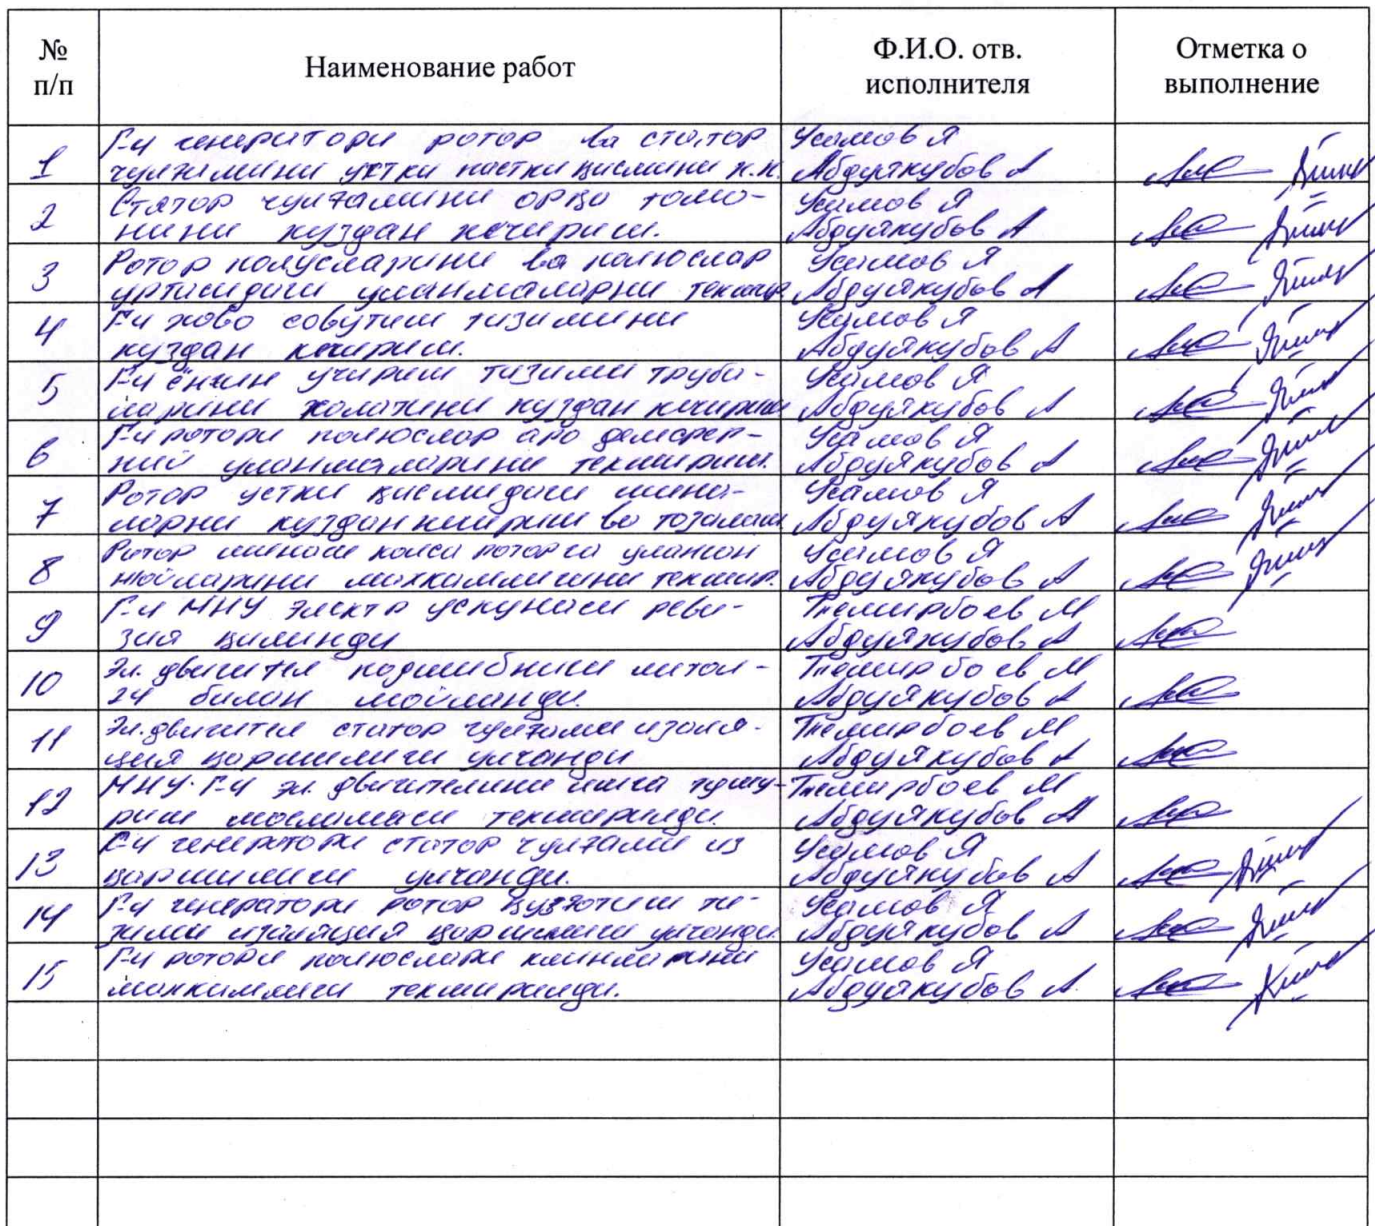 № п/п
Наименование работ
Ф.И.О. отв. исполнителя
Отметка о выполнение
1
Г-4 генератори ротор ва статор
чулғамини устки пастки қисмини к.к.
Усамов Я
Абдуякубов А
2
Статор чулғамини орқа томо-
нини куздан кечириш.
Усамов Я
Абдуякубов А
3
Ротор полусларини ва полюслар
уртасидаги уланмаларни текшир
Усамов Я
Абдуякубов А
4
Г-4 хово совутиш тизимини
куздан кечириш.
Усамов Я
Абдуякубов А
5
Г-4 ёнгин учириш тизими труба-
ларини холатини куздан кечириш
Усамов Я
Абдуякубов А
6
Г-4 ротори полюслар аро демпфер-
ний уланмаларини текшириш.
Усамов Я
Абдуякубов А
7
Ротор устки қисмидаги шина-
ларни куздан кечириш ва тозалаш
Усамов Я
Абдуякубов А
8
Ротор шинаси роторга уланган
жойларини махкамлигини текшир.
Усамов Я
Абдуякубов А
9
Г-4 МНУ электр ускунаси реви-
зия қилинди
Темирбоев М
Абдуякубов А
10
Эл. двигател подшибниги литол-
24 билан мойланди.
Темирбоев М
Абдуякубов А
11
Эл. двигател статор чулғами изоля-
ция қаршилиги улчанди
Темирбоев М
Абдуякубов А
12
МНУ. Г-4 эл. двигателини ишга тушу-
риш мосламаси текширилди.
Темирбоев М
Абдуякубов А
13
Г-4 генератори статор чулғами из
қаршилиги улчанди.
Усамов Я
Абдуякубов А
14
Г-4 генератори ротор қузғотиш ти-
зими изоляция қаршилиги улчанди
Усамов Я
Абдуякубов А
15
Г-4 ротори полюслари клинларини
махкамлиги текширилди.
Усамов Я
Абдуякубов А.